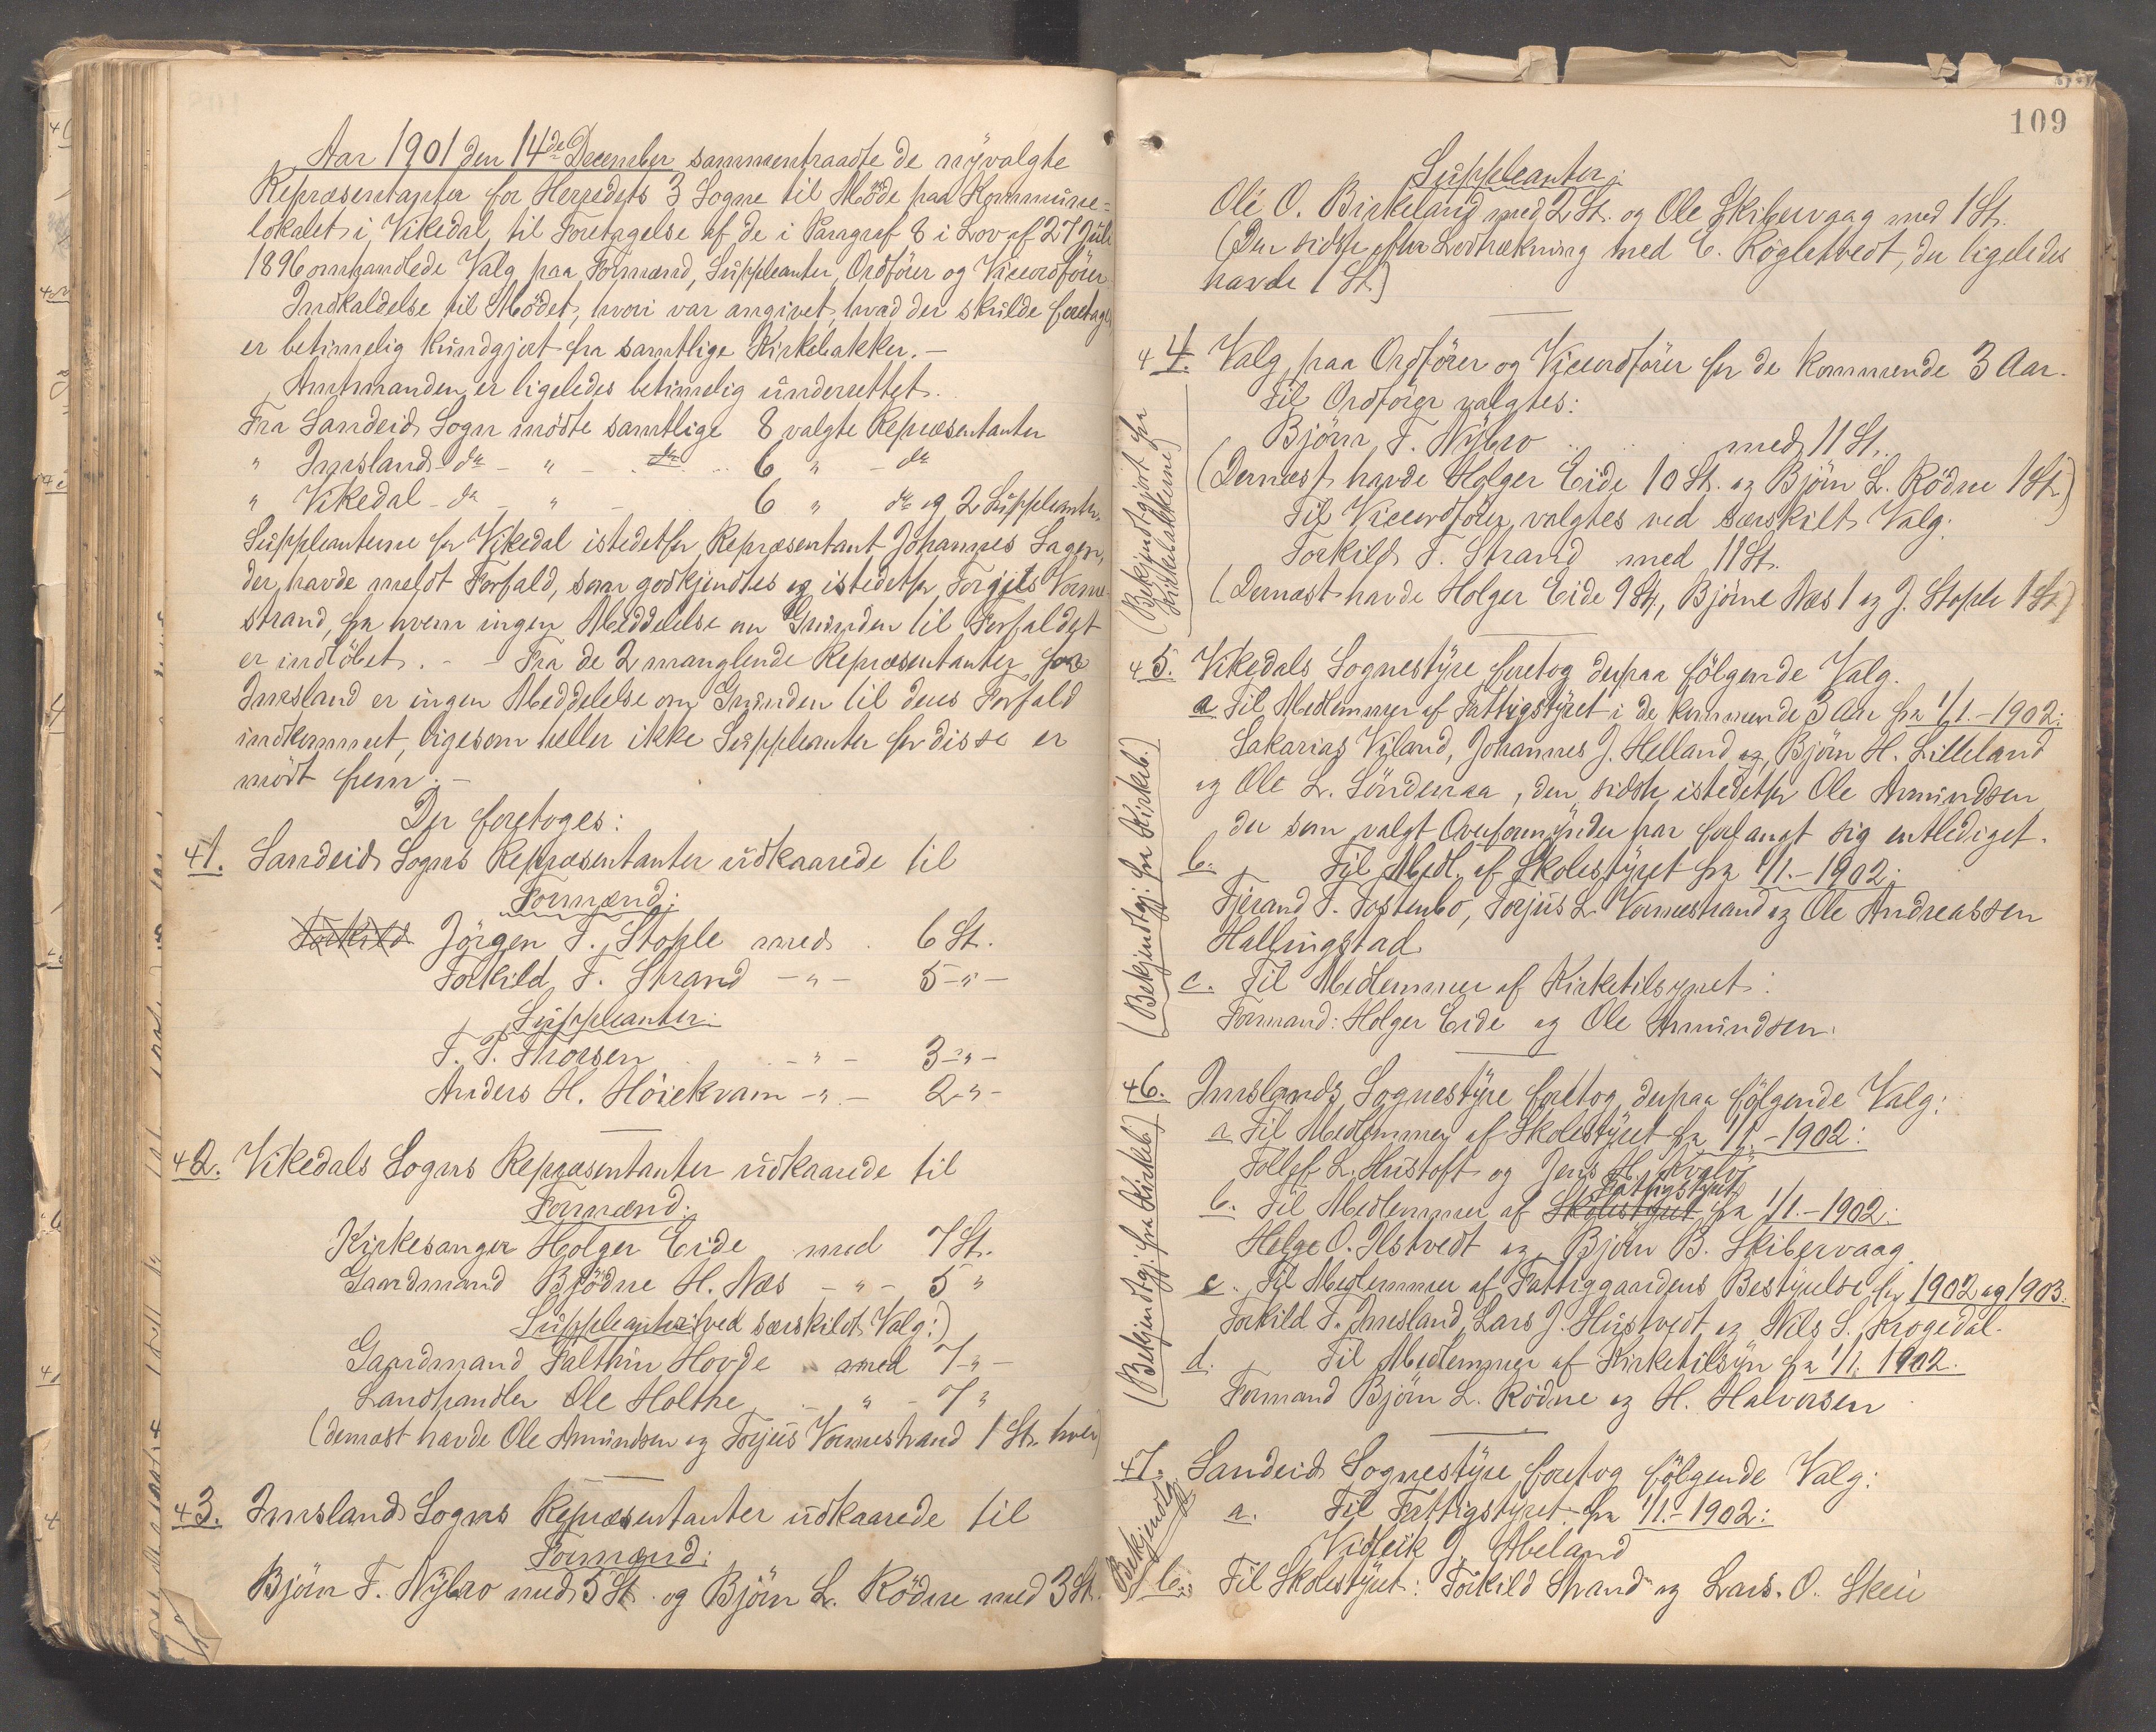 Aar 1901 den 14de December sammentraadte de nyvalgte
Repræsentanter for Herredets 3 Sogne til Möde paa Kommune-
lokalet i Vikedal til Foretagelse af de i Paragraf 8 i Lov af 27 Juli
1896 omhandlede Valg paa Formænd, Suppleanter, Ordförer og Viceordförer.
Indkaldelse til Mödet, hvori var angivet, hvad der skulde foretages
er betimelig kundgjort fra samtlige Kirkebakker. -
Amtmanden er ligeledes betimelig underrettet.
Fra Sandeid Sogn mödte samtlige 8 valgte Repræsentanter
" Imsland do - " - do ... 6 " - do
" Vikedal - do - " - 6 " do og 2 Suppleanter.
Suppleanterne for Vikedal istedetfor Repræsentant Johannes Sagen,
der havde meldt Forfald, som godkjendtes og istedetfor Torgils Vorme-
strand, fra hvem ingen Meddelelse om Grunden til Forfaldet
er indlöbet. - - Fra de 2 manglende Repræsentanter for
Imsland er ingen Meddelelse om Grunden til deres Forfald
indkommet, ligesom heller ikke Suppleanter for disse er
mödt frem. -
Der foretoges:
41. Sandeid Sogns Repræsentanter udkaarede til
Formænd:
Torkild Jörgen T. Stople med . 6 St.
Torkild T. Strand - " - 5 - " -
Suppleanter:
T. T. Thorsen - " - 3 - " -
Anders H. Höiekvam - " - 2 - " -
42. Vikedals Sogns Repræsentanter udkaarede til
Formænd:
Kirkesanger Holger Eide med 7 St.
Gaardmand Bjödne H. Næs - " - 5 "
Suppleanter (ved særskildt Valg:)
Gaardmand Falthin Hovde med 7 - " -
Landhandler Ole Holthe " - 7 "
(dernæst havde Ole Amundsen og Torjus Vormestrand 1 St. hver)
43. Imslands Sogns Repræsentanter udkaarede til
Formænd:
Björn T. Nybro med 5 St. og Björn L. Rödne med 3 St.
109
Suppleanter:
Ole O. Birkeland med 2 St. og Ole Skibervaag med 1 St.
(Den sidste efter Lodtrækning med E. Rögletvedt, der ligeledes
havde 1 St.)
44. Valg paa Ordförer og Viceordförer for de kommende 3 Aar.
Til Ordförer valgtes:
Björn T. Nybro ... med 11 St.
(Dernæst havde Holger Eide 10 St. og Björn L. Rödne 1 St.)
Til Viceordförer valgtes ved særskilt Valg:
Torkild T. Strand med 11 St.
(Dernæst havde Holger Eide 9 St., Björne Næs 1 og J. Stople 1 St.)
(Bekjendtgjort fra
Kirkebakkerne)
45. Vikedals Sognestyre foretog derpaa fölgende Valg.
a Til Medlemmer af Fattigstyret i de kommende 3 Aar fra 1/1. - 1902:
Sakarias Viland, Johannes J. Helland og Björn H. Lilleland
og Ole L. Söndenaa, den sidste istedetfor Ole Amundsen,
der som valgt Overformynder har forlangt sig entlediget.
b. Til Medl. af Skolestyret fra 1/1. - 1902:
Fjerand T. Tostenbö, Torjus L Vormestrand og Ole Andreassen
Hallingstad.
c. Til Medlemmer af Kirketilsynet:
Formand: Holger Eide og Ole Amundsen.
(Bekjendtgj. fra Kirkeb.)
46. Imslands Sognestyre foretog derpaa fölgende Valg:
a Til Medlemmer af Skolestyret fra 1/1. - 1902:
Tollef L. Hustoft og Jens H. Kvalöy
Fattigstyret
b. Til Medlemmer af Skolestyret fra 1/1. - 1902:
Helge O. Ilstvedt og Björn B. Skibervaag.
c. Til Medlemmer af Fattiggaardens Bestyrelse for 1902 og 1903.
Torkild T. Imsland, Lars J. Hustvedt og Nils S. Krogedal.
d. Til Medlemmer af Kirketilsyn fra 1/1. 1902.
Formand Björn L. Rödne og H. Halvorsen
(Bekjendtgj. fra Kirkeb.)
47. Sandeid Sognestyre foretog fölgende Valg:
a. Til Fattigstyret fra 1/1. - 1902:
Vidleik J. Abeland
b. Til Skolestyret: Torkild Strand og Lars. O. Skeii
Bekjendtg.